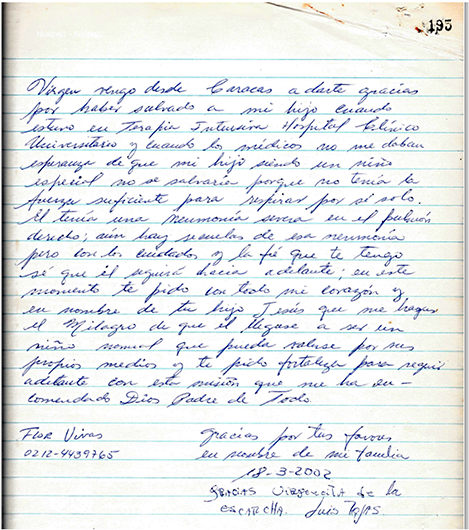 195
Virgen vengo desde Caracas a darte gracias
por haber salvado a mi hijo cuando
estuvo en Terapia Intensiva Hospital Clínico
Universitario y cuando los médicos no me daban
esperanza de que mi hijo siendo un niño
especial no se salvaría porque no tenía la
fuerza suficiente para respirar por sí solo.
Él tenía una neumonía severa en el pulmón
derecho; aún hay secuelas de esa neumonía
pero con los cuidados y la fé que te tengo
sé que él seguirá hacia adelante; en este
momento te pido con todo mi corazón y
en nombre de tu hijo Jesús que me hagas
el Milagro de que él llegase a ser un
niño normal que pueda valerse por sus
propios medios y te pido fortaleza para seguir
adelante con esta misión que me ha en-
comendado Dios Padre de Todo.
Flor Vivas
0212-4439765
Gracias por tus favores
en nombre de mi familia
18-3-2002
GRACIAS VIRGENCITA de la
ESCARCHA. Luis